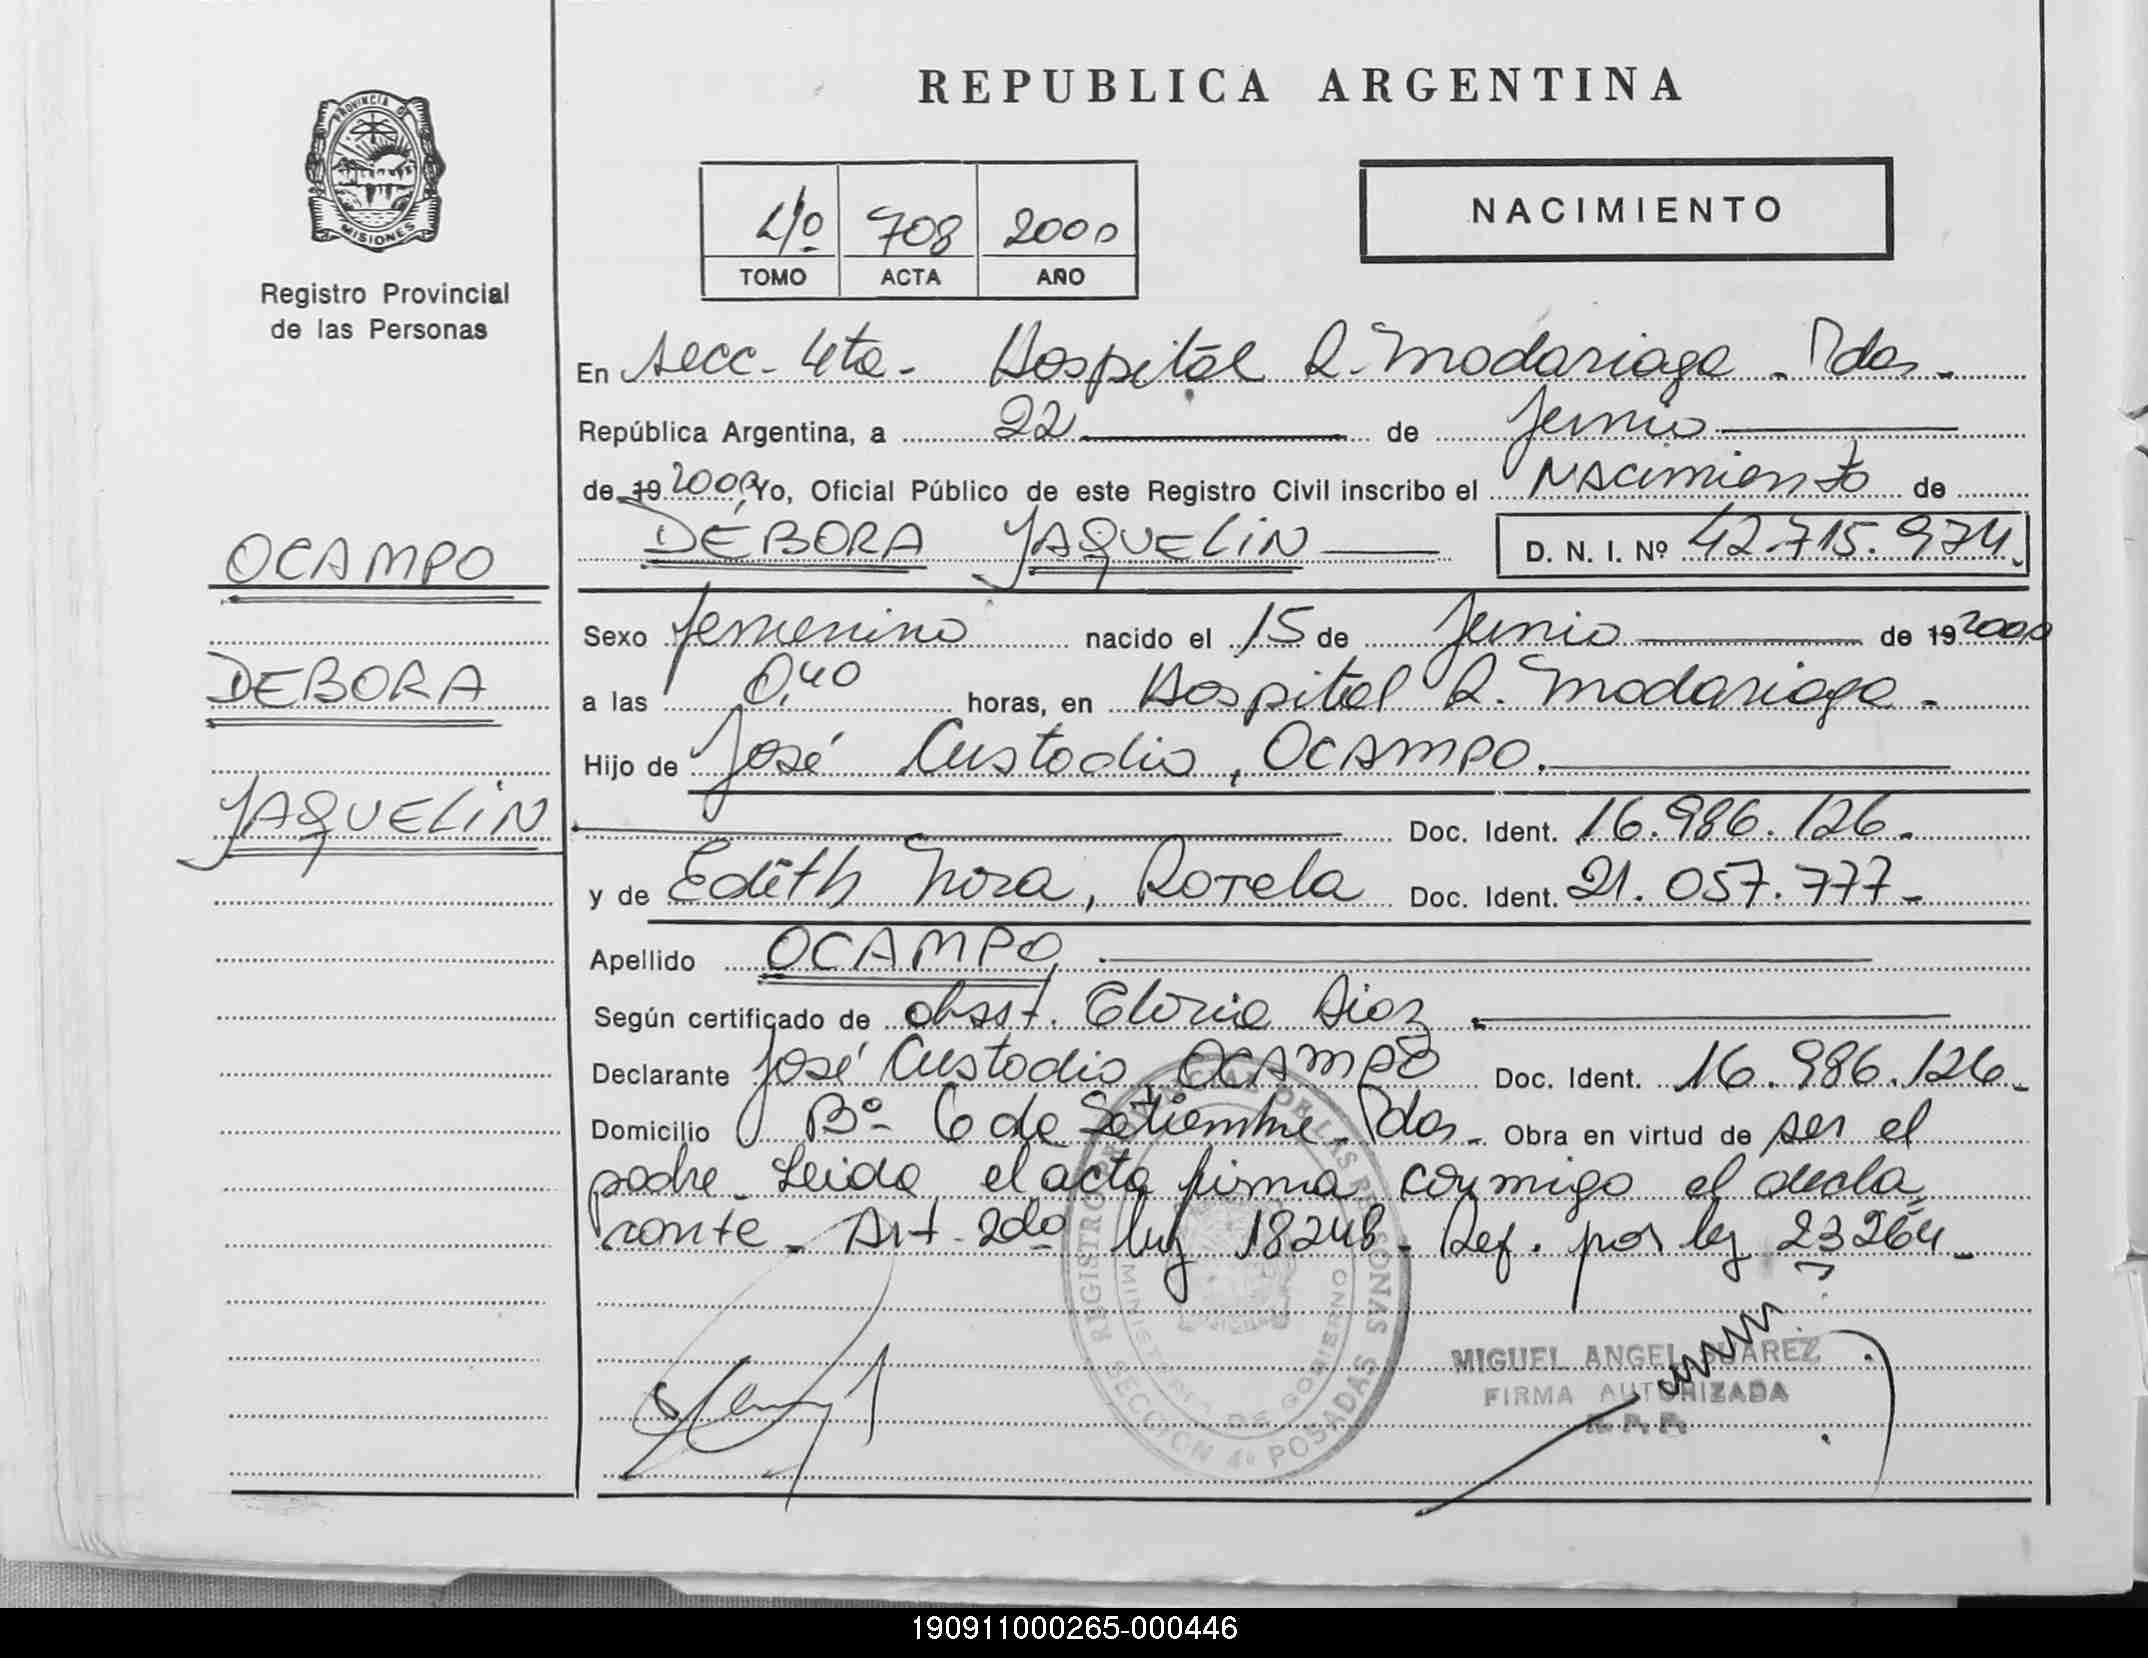 REPUBLICA ARGENTINA
PROVINCIA DE
MISIONES
Registro Provincial
de las Personas
4º 708 2000
TOMO ACTA AÑO
NACIMIENTO
En Secc. 4ta. Hospital R. Madariaga - Pdas.
República Argentina, a 22 de Junio
de 19 2000, Yo, Oficial Público de este Registro Civil inscribo el Nacimiento de
DÉBORA JAQUELIN D. N. I. Nº 42.715.974.
OCAMPO
DEBORA
JAQUELIN
Sexo femenino nacido el 15 de Junio de 19 2000
a las 0,40 horas, en Hospital R. Madariaga.
Hijo de José Custodio, OCAMPO.
Doc. Ident. 16.986.126.
y de Edith Nora, Rotela Doc. Ident. 21.057.777.
Apellido OCAMPO
Según certificado de obsst. Gloria Diaz
Declarante José Custodio, OCAMPO Doc. Ident. 16.986.126.
Domicilio Bº 6 de Setiembre - Pdas. Obra en virtud de ser el
padre. Leida el acta firma conmigo el decla
rante. Art. 2do ley 18248. Ref. por ley 23264.
REGISTRO PROVINCIAL DE LAS PERSONAS
MINISTERIO DE GOBIERNO
SECCION 4º POSADAS
MIGUEL ANGEL SUAREZ
FIRMA AUTORIZADA
R. P. P.
190911000265-000446